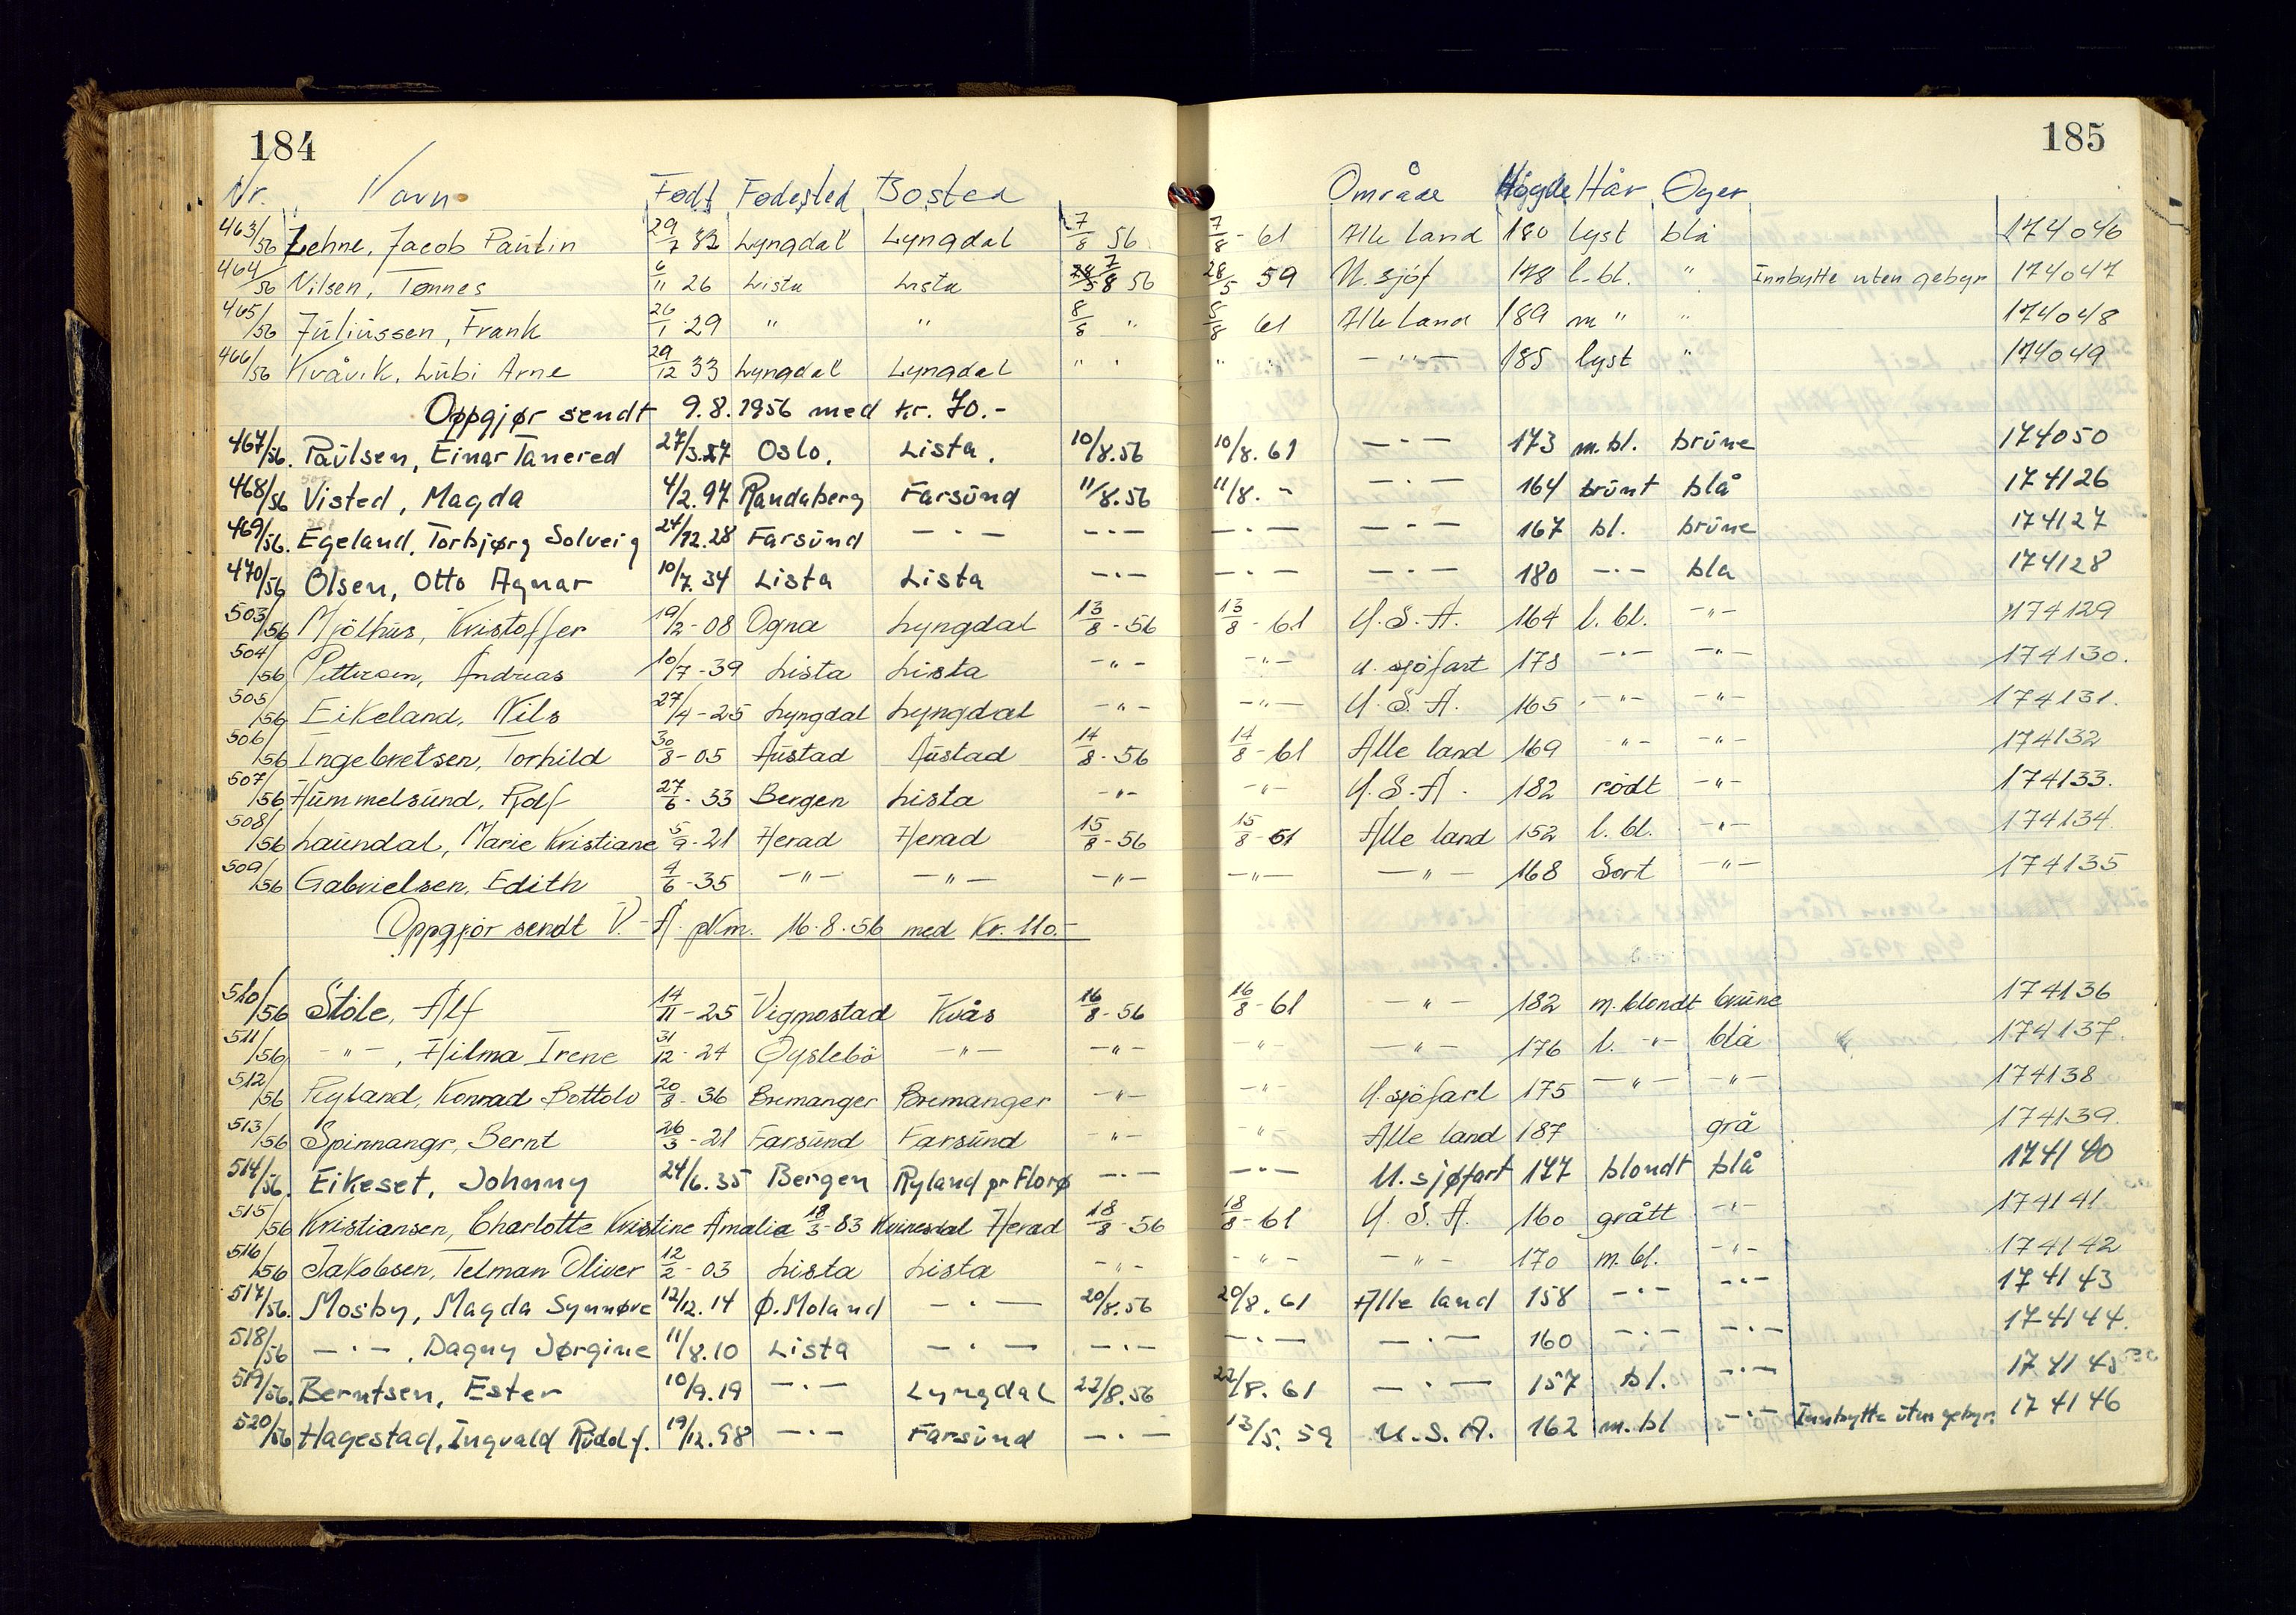 184
185
Nr. Navn Født Fødested Bosted Område Høgde Hår Øyer
463/56 Lehne, Jacob Paulin 29/7 82 Lyngdal Lyngdal 7/8 56 7/8 - 61 Alle land 180 lyst blå 174046
464/56 Nilsen, Tønnes 6/11 26 Lista Lista 7/8 56 28/5 59 U. sjöf 178 l.bl. " Innbytte uten gebyr 174047
465/56 Juliussen, Frank 26/1 29 " " 8/8 " 8/8 61 Alle land 189 m " " 174048
466/56 Kvåvik, Lubi Arne 29/12 33 Lyngdal Lyngdal " " " " — " — 185 lyst " 174049
Oppgjør sendt 9.8.1956 med kr. 70.-
467/56. Paulsen, Einar Tancred 27/3.27 Oslo. Lista. 10/8.56 10/8.61 — " — 173 m.bl. brune 174050
468/56 Visted, Magda 4/2.97 Randaberg Farsund 11/8.56 11/8. - — " — 164 brunt blå 174126
469/56. Egeland, Torbjørg Solveig 24/12.28 Farsund — " — — " — — " — — " — 167 bl. brune 174127
470/56 Olsen, Otto Agnar 10/7.34 Lista Lista — " — — " — — " — 180 — " — bla 174128
503/56 Mjölhus, Kristoffer 19/2-08 Ogna Lyngdal 13/8-56 13/8-61 U.S.A. 164 l. bl. — " — 174129
504/56 Pettersen, Andreas 10/7-39 Lista Lista — " — — " — u. sjöfart 178 — " — — " — 174130.
505/56 Eikeland, Nils 27/4-25 Lyngdal Lyngdal — " — — " — U.S.A. 165 — " — — " — 174131.
506/56 Ingebretsen, Torhild 30/8-05 Austad Austad 14/8-56 14/8-61 Alle land 169 — " — — " — 174132
507/56 Hummelsund, Rolf 27/6-33 Bergen Lista — " — — " — U.S.A. 182 rödt — " — 174133.
508/56 Laundal, Marie Kristiane 5/9-21 Herad Herad 15/8-56 15/8-61 Alle land 152 l. bl. — " — 174134
509/56 Gabrielsen, Edith 4/6-35 — " — — " — — " — — " — — " — 168 Sort — " — 174135
Oppgjör sendt V.-A. pkm. 16.8.56 med Kr. 110.-
510/56 Stöle, Alf 14/11-25 Vigmostad Kvås 16/8-56 16/8-61 — " — 182 m. blondt brune 174136
511/56 — " —, Hilma Irene 31/12-24 Öyslebö — " — — " — — " — — " — 176 l. — " — blå 174137.
512/56 Ryland, Konrad Bottolv 20/8-36 Bremanger Bremanger — " — — " — U. sjöfart 175 — " — — " — 174138
513/56 Spinnangr, Bernt 26/3-21 Farsund Farsund — " — — " — Alle land 187 grå 174139.
514/56. Eikeset, Johnny 24/6.35 Bergen Ryland pr Florø — " — — " — U. sjøfart 177 blondt blå 174140
515/56 Kristiansen, Charlotte Kristine Amalie 18/3-83 Kvinesdal Herad 18/8-56 18/8-61 U.S.A. 160 grått — " — 174141
516/56 Jakobsen, Telman Oliver 12/2-03 Lista Lista — " — — " — — " — 170 m. bl. — " — 174142
517/56. Mosby, Magda Synnøve 12/12.14 Ø. Moland — " — 20/8.56 20/8.61 Alle land 158 — " — — " — 174143
518/56 — " —, Dagny Jørgine 11/8.10 Lista — " — — " — — " — — " — 160 — " — — " — 174144.
519/56. Berntsen, Ester 10/9.19 — " — Lyngdal 22/8.56 22/8.61 — " — 157 bl. — " — 174145
520/56 Hagestad, Ingvald Rudolf. 19/12.98 — " — Farsund — " — 13/5.59 U.S.A. 162 m.bl — " — Innbytte uten gebyr. 174146